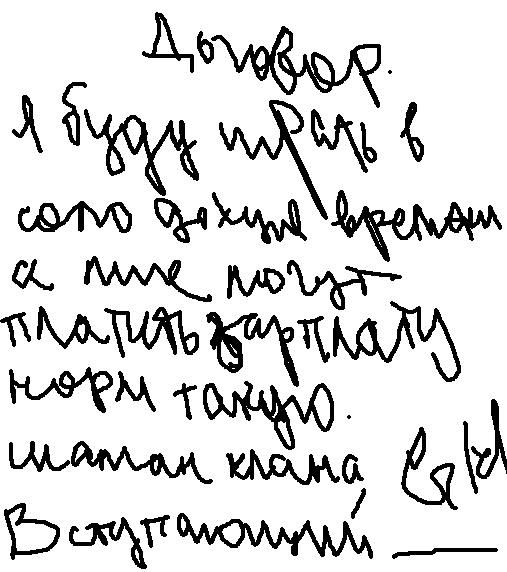 Договор.
Я буду играть в
соло дохуя времени
а мне могут
платить зарплату
норм такую.
шаман клана
Вступающий